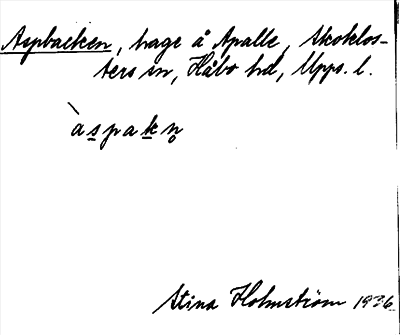 Aspbacken, hage å Apalle, Skoklos-
ters sn, Håbo hd, Upps. l.
àspakn̥
Stina Holmström 1936